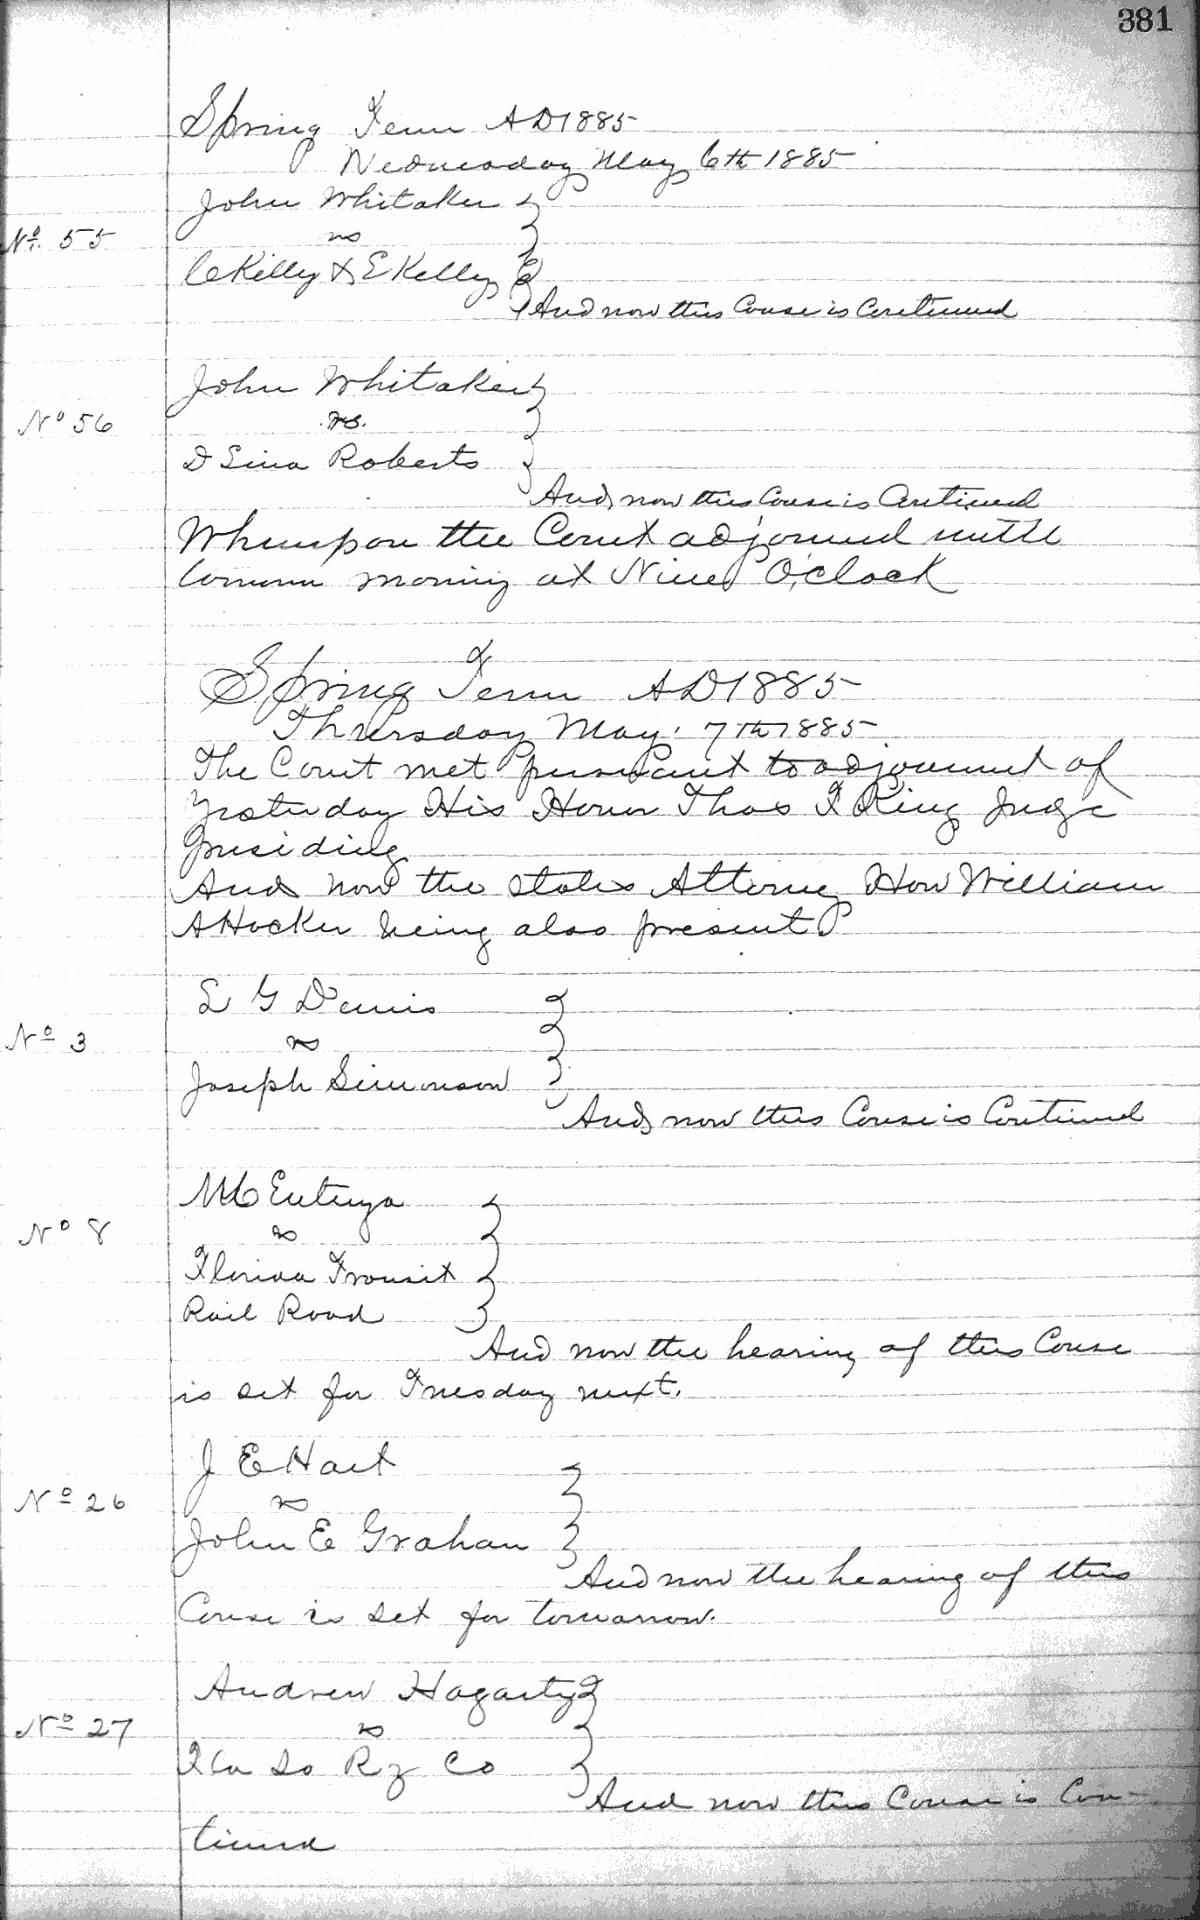 381
Spring Term AD 1885
Wednesday May 6th 1885
John Whitaker
No. 55
vs
C Kelly & E Kelly
And now this Cause is Continued
John Whitaker
No 56
vs.
D Roberts
And now this Cause is Continued
Whereupon the Court adjourned untill
tomorrow morning at Nine O'clock
Spring Term AD 1885
Thursday May. 7th 1885
The Court met pursuant to adjournment of
yesterday His Honor Thos F King Judge
presiding
And now the states Attorney Hon William
A Hocker being also present
L G Dennis
No 3
vs
Joseph Simonson
And now this Cause is Continued
No 8
vs
Florida Transit
Rail Road
And now the hearing of this Cause
is set for Tuesday next.
J E Hart
No 26
vs
John E Graham
And now the hearing of this
Cause is set for tomorrow.
Andrew Hagarty
No 27
vs
Fla So Ry Co
And now this Cause is Con-
tinued